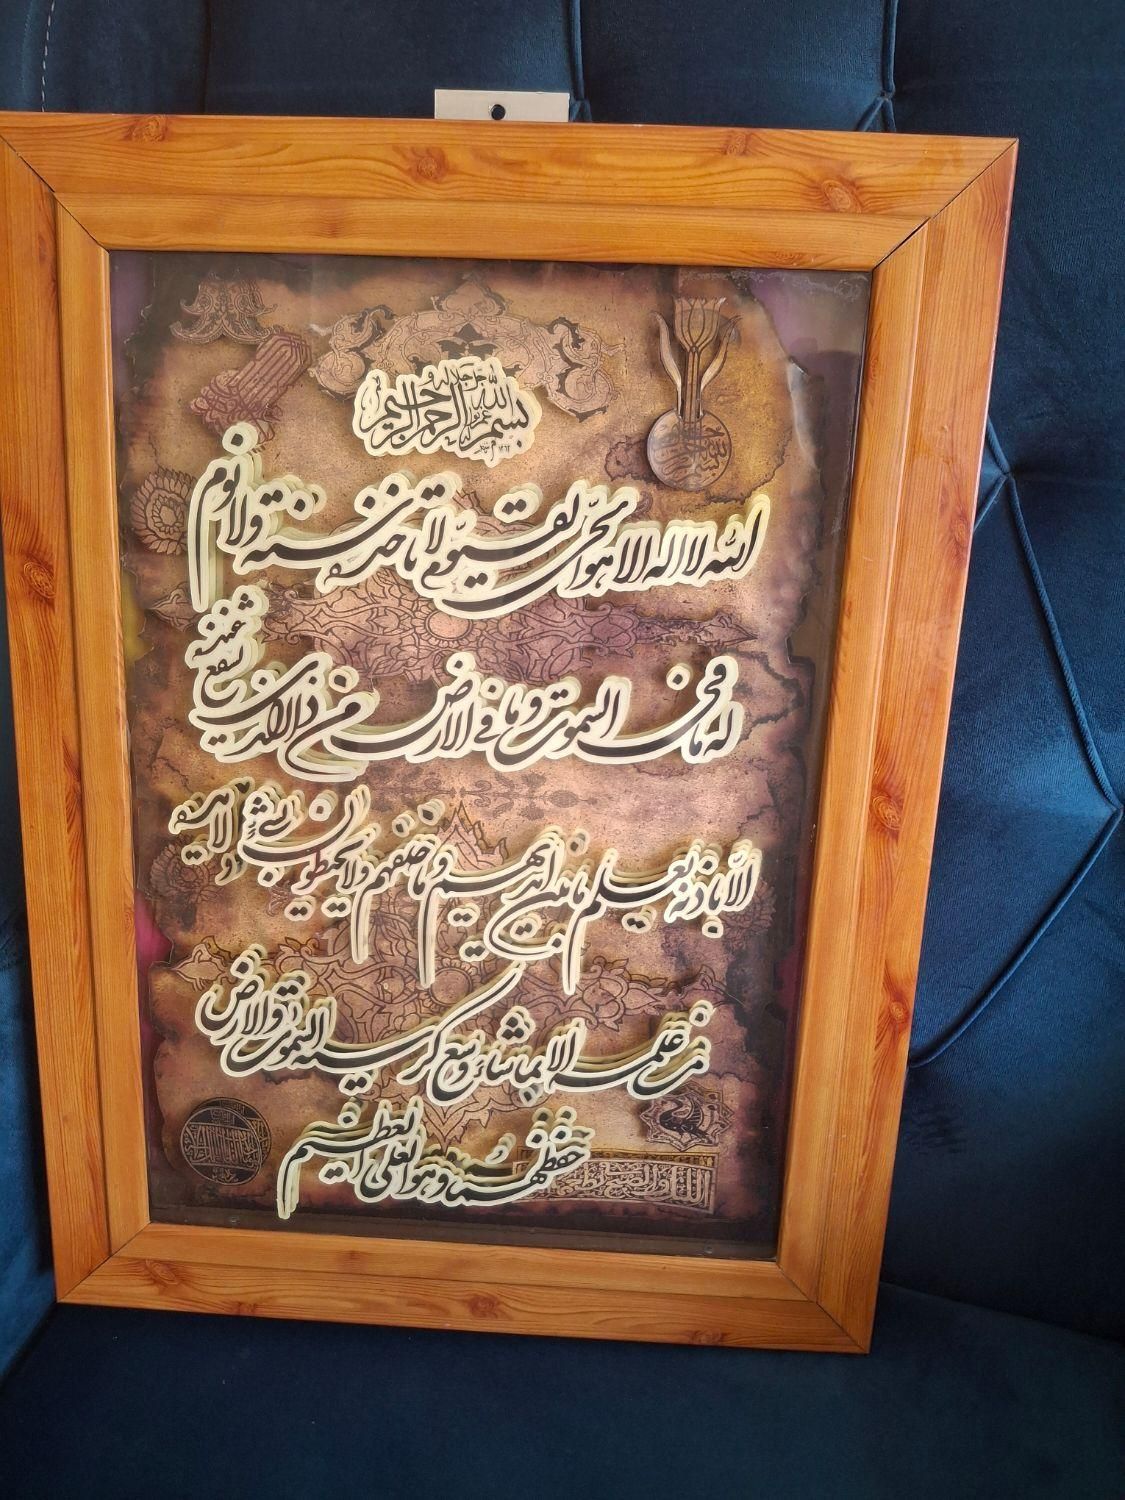 بسم الله الرحمن الرحیم
الله لا اله الا هو الحی القیوم لا تاخذه سنة ولا نوم
له ما فی السموت و ما فی الارض من ذا الذی یشفع عنده
الا باذنه یعلم ما بین ایدیهم و ما خلفهم ولا یحیطون بشیء
من علمه الا بما شاء وسع کرسیه السموت والارض ولا یوده
حفظهما و هو العلی العظیم